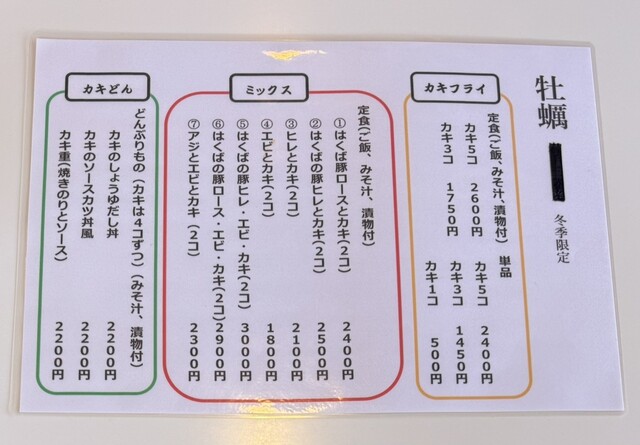 牡蠣
冬季限定
カキフライ
定食(ご飯、みそ汁、漬物付)
カキ5コ 2600円
カキ3コ 1750円
単品
カキ5コ 2400円
カキ3コ 1450円
カキ1コ 500円
ミックス
定食(ご飯、みそ汁、漬物付)
①はくば豚ロースとカキ(2コ) 2400円
②はくばの豚ヒレとカキ(2コ) 2500円
③ヒレとカキ(2コ) 2100円
④エビとカキ(2コ) 1800円
⑤はくばの豚ヒレ・エビ・カキ(2コ) 3000円
⑥はくばの豚ロース・エビ・カキ(2コ) 2900円
⑦アジとエビとカキ(2コ) 2300円
カキどん
どんぶりもの(カキは4コずつ)(みそ汁、漬物付)
カキのしょうゆだし丼 2200円
カキのソースカツ丼風 2200円
カキ重(焼きのりとソース) 2200円